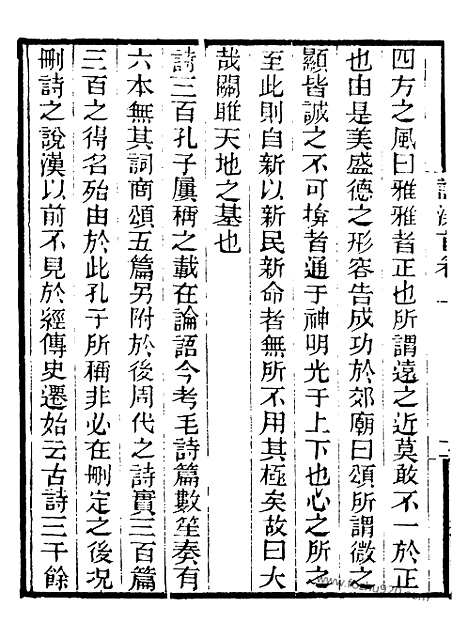 四方之風曰雅雅者正也所謂遠之近莫敢不一於正
也由是美盛德之形容告成功於郊廟曰頌所謂微之
顯皆誠之不可揜者通于神明光于上下也心之所之
至此則自新以新民新命者無所不用其極矣故曰大
哉關雎天地之基也
詩三百孔子屢稱之載在論語今考毛詩篇數笙奏有
六本無其詞商頌五篇另附於後周代之詩實三百篇
三百之得名殆由於此孔子所稱非必在刪定之後况
刪詩之說漢以前不見於經傳史遷始云古詩三千餘